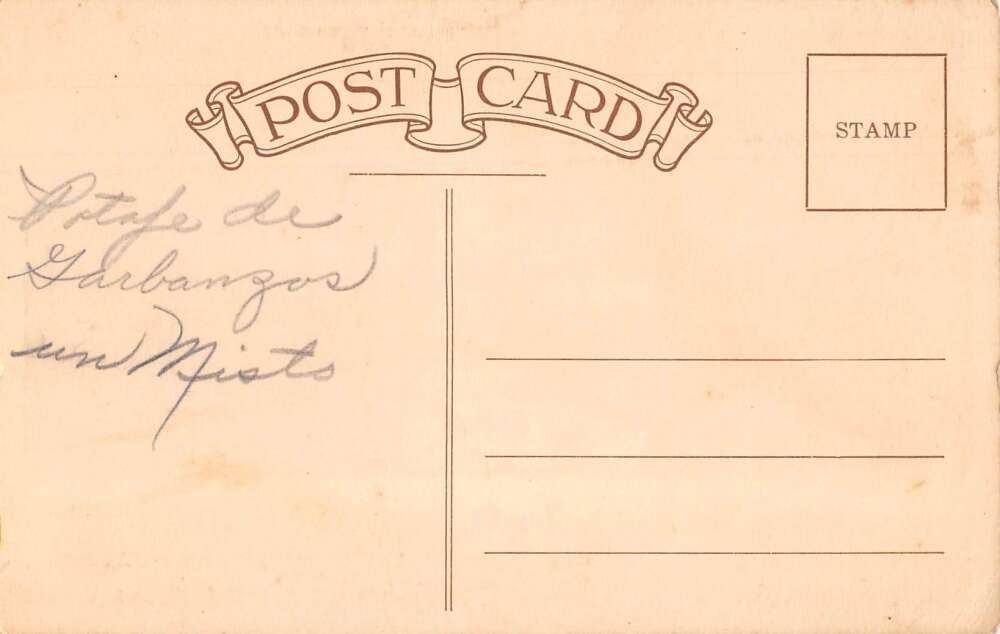 POST CARD
STAMP
Potaje de
Garbanzos
un Misto